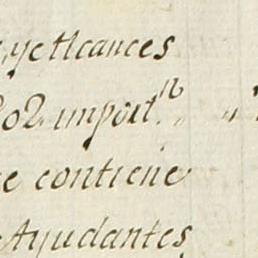 y etlcances
por import.n
e contiene
Ayudantes